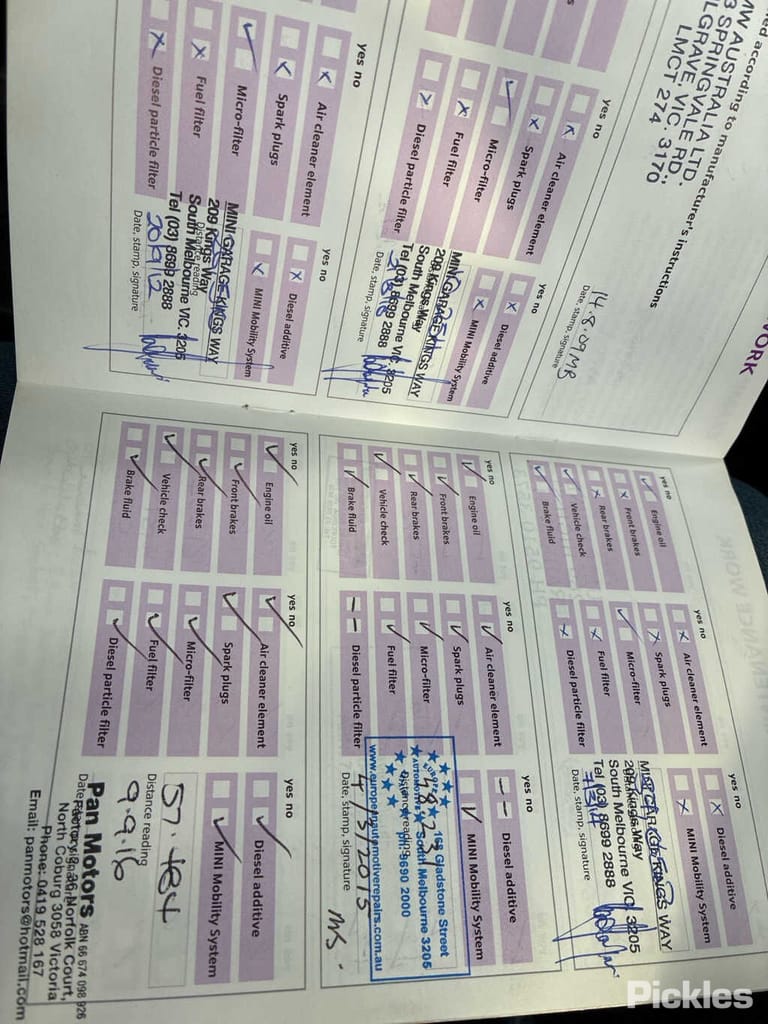 ORK
ed according to manufacturer's instructions
W AUSTRALIA LTD.
SPRINGVALE RD.
LGRAVE, VIC. 3170
LMCT 274
14.8.09
Date, stamp, signature
yes no
Air cleaner element
Spark plugs
Micro-filter
Fuel filter
Diesel particle filter
yes no
Diesel additive
MINI Mobility System
MINI GARAGE KINGS WAY
209 Kings Way
South Melbourne VIC. 3205
Tel (03) 8699 2888
Date, stamp, signature
yes no
Air cleaner element
Spark plugs
Micro-filter
Fuel filter
Diesel particle filter
yes no
Diesel additive
MINI Mobility System
MINI GARAGE KINGS WAY
209 Kings Way
Distance reading
South Melbourne VIC. 3205
Tel (03) 8699 2888
20/9/12
Date, stamp, signature
yes no
Engine oil
Front brakes
Rear brakes
Vehicle check
Brake fluid
yes no
Air cleaner element
Spark plugs
Micro-filter
Fuel filter
Diesel particle filter
yes no
Diesel additive
MINI Mobility System
MINI GARAGE KINGS WAY
209 Kings Way
South Melbourne VIC 3205
Tel (03) 8699 2888
Date, stamp, signature
yes no
Engine oil
Front brakes
Rear brakes
Vehicle check
Brake fluid
yes no
Air cleaner element
Spark plugs
Micro-filter
Fuel filter
Diesel particle filter
yes no
Diesel additive
MINI Mobility System
168 Gladstone Street
South Melbourne 3205
AUTOMOTIVE
Distance reading
PH: 9690 2000
www.europeanautomotiverepairs.com.au
4/3/2015
Date, stamp, signature
MS.
yes no
Engine oil
Front brakes
Rear brakes
Vehicle check
Brake fluid
yes no
Air cleaner element
Spark plugs
Micro-filter
Fuel filter
Diesel particle filter
yes no
Diesel additive
MINI Mobility System
57.484
Distance reading
9.9.16
Pan Motors ABN 66 674 098 926
Factory 2, 36 Norfolk Court,
North Coburg 3058 Victoria
Phone: 0419 528 167
Email: panmotors@hotmail.com
Pickles